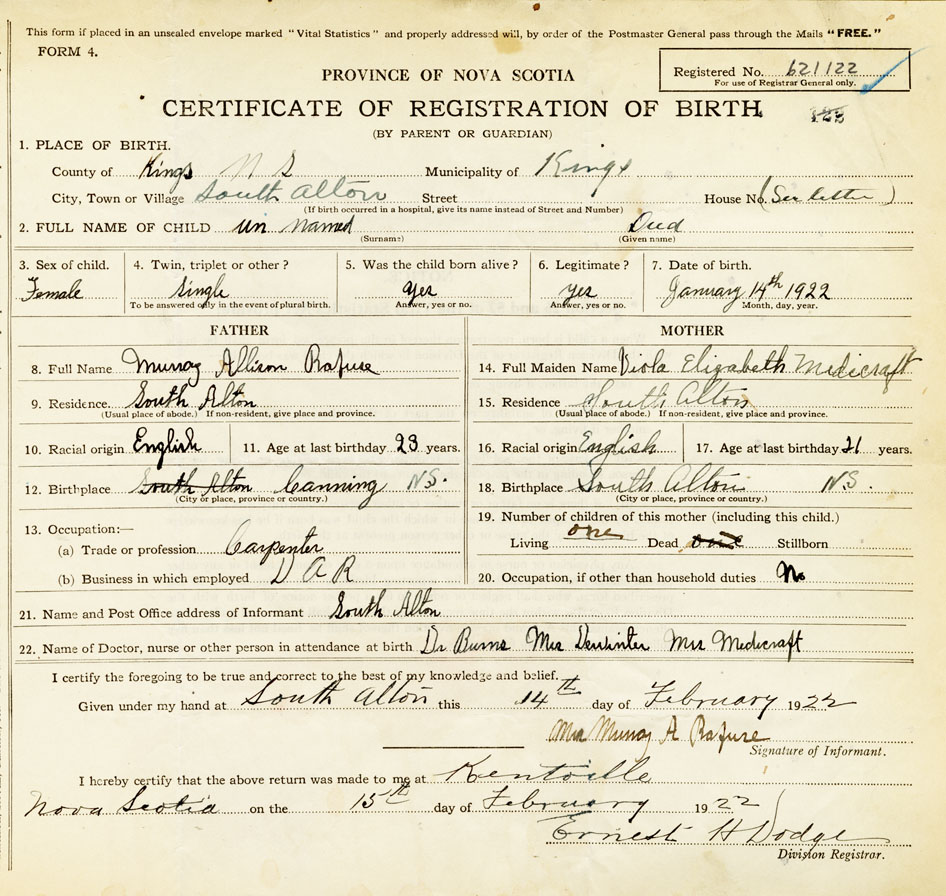 This form if placed in an unsealed envelope marked "Vital Statistics" and properly addressed will, by order of the Postmaster General pass through the Mails "FREE."
FORM 4.
Registered No. 621122
For use of Registrar General only.
PROVINCE OF NOVA SCOTIA
CERTIFICATE OF REGISTRATION OF BIRTH
122
(BY PARENT OR GUARDIAN)
1. PLACE OF BIRTH.
County of Kings N S Municipality of Kings
City, Town or Village South Alton Street House No. (See letter)
(If birth occurred in a hospital, give its name instead of Street and Number)
2. FULL NAME OF CHILD Un named Died
(Surname) (Given name)
3. Sex of child. 4. Twin, triplet or other? 5. Was the child born alive? 6. Legitimate? 7. Date of birth.
Female Single yes yes January 14th 1922
To be answered only in the event of plural birth. Answer, yes or no. Answer, yes or no. Month, day, year.
FATHER MOTHER
8. Full Name Murray Allison Rafuse 14. Full Maiden Name Viola Elizabeth Medicraft
9. Residence. South Alton 15. Residence South Alton
(Usual place of abode.) If non-resident, give place and province. (Usual place of abode.) If non-resident, give place and province.
10. Racial origin English 11. Age at last birthday 23 years. 16. Racial origin English 17. Age at last birthday 21 years.
12. Birthplace South Alton Canning N.S. 18. Birthplace South Alton N.S.
(City or place, province or country.) (City or place, province or country.)
19. Number of children of this mother (including this child.)
13. Occupation:—
Living one Dead one Stillborn
(a) Trade or profession Carpenter
(b) Business in which employed D A R 20. Occupation, if other than household duties No
21. Name and Post Office address of Informant South Alton
22. Name of Doctor, nurse or other person in attendance at birth Dr Burns Mrs Mrs Medicraft
I certify the foregoing to be true and correct to the best of my knowledge and belief.
Given under my hand at South Alton this 14th day of February 1922
Mrs Murray A Rafuse
Signature of Informant.
I hereby certify that the above return was made to me at Kentville
Nova Scotia on the 15th day of February 1922
Ernest H Dodge
Division Registrar.